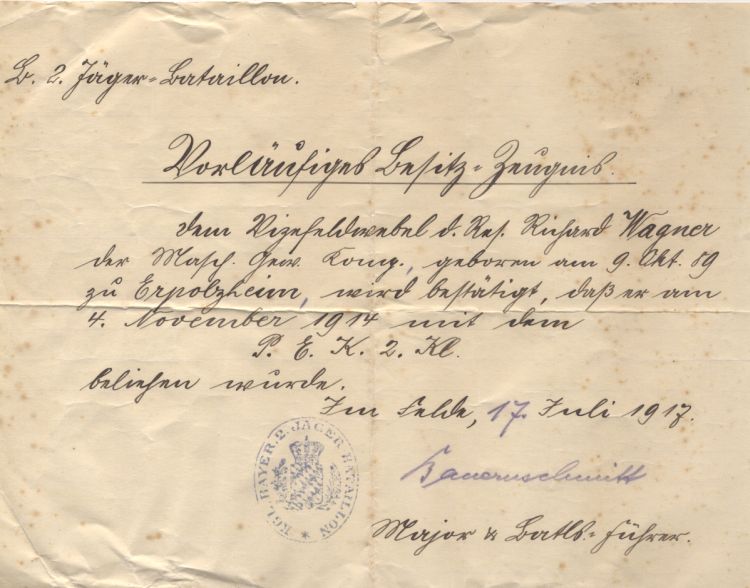 B. 2. Jäger-Bataillon.
Vorläufiges Besitz-Zeugnis.
dem Vizefeldwebel d. Res. Richard Wagner
der Masch. Gew. Komp., geboren am 9. Okt. 89
zu Erpolzheim, wird bestätigt, daß er am
4. November 1914 mit dem
P. E. K. 2. Kl.
beliehen wurde.
Im Felde, 17. Juli 1917.
KGL. BAYER. 2. JÄGER BATAILLON *
Bauernschmitt
Major & Batls-führer.